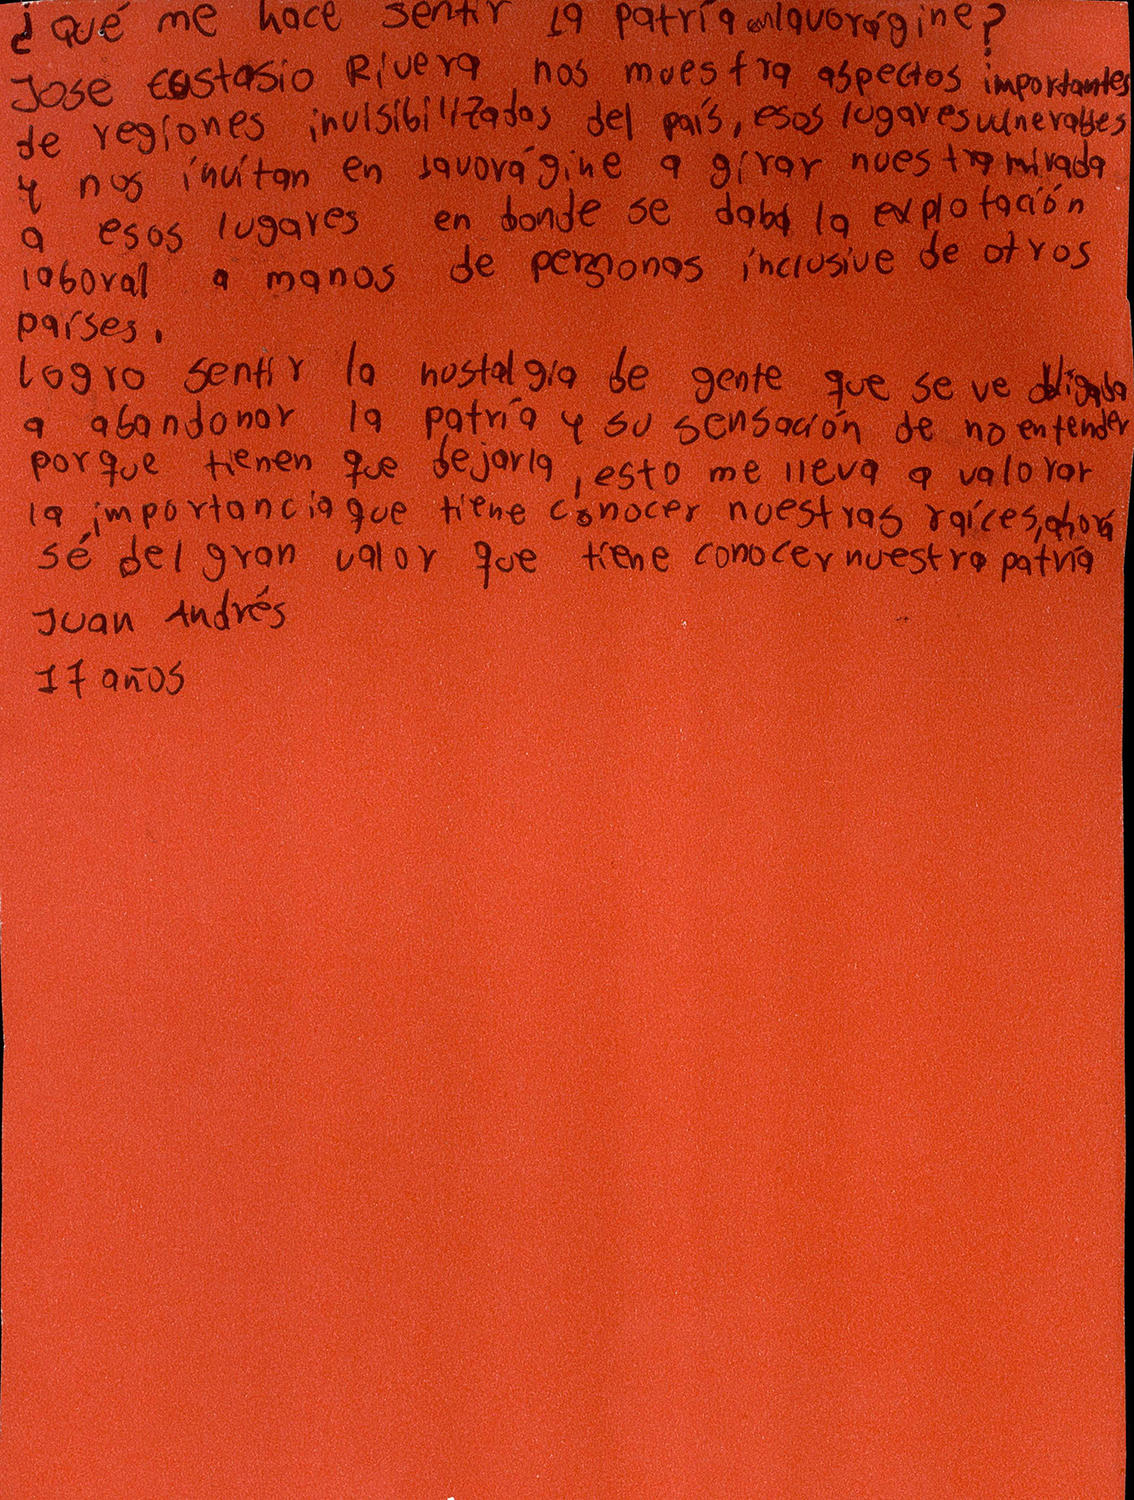 ¿Qué me hace sentir la patría en lavorágine?
Jose Eustasio Rivera nos muestra aspectos importantes
de regiones invisibilizadas del país, esos lugares vulnerables
y nos invitan en lavorágine a girar nuestra mirada
a esos lugares en donde se daba la explotación
laboral a manos de personas inclusive de otros
países.
Logro sentir la nostalgia de gente que se ve obligada
a abandonar la patría y su sensación de no entender
porque tienen que dejarla, esto me lleva a valorar
la importancia que tiene conocer nuestras raíces, ahora
sé del gran valor que tiene conocer nuestra patría
Juan Andrés
17 años